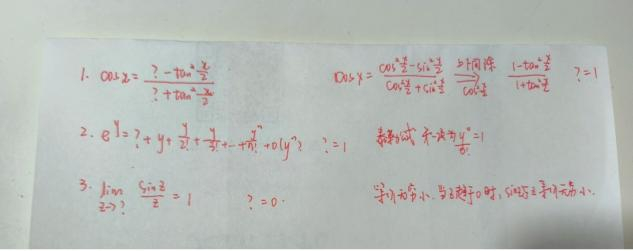 1. cos x = (? - tan² x/2)/(? + tan² x/2) cos x = (cos² x/2 - sin² x/2)/(cos² x/2 + sin² x/2) 同除 cos² x/2 (1 - tan² x/2)/(1 + tan² x/2) ? = 1
2. e^y = ? + y + y/2! + y/3! + … + yⁿ/n! + o(yⁿ) ? = 1 泰勒公式 第一项为 y⁰/0! = 1
3. lim z→? sin z/z = 1 ? = 0. 等价无穷小. 当z趋于0时, sin z与z等价无穷小.